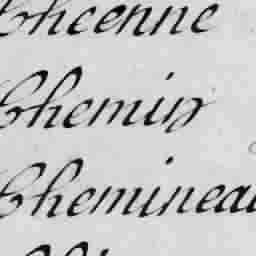 Cheenne
Chemin
Chemineau